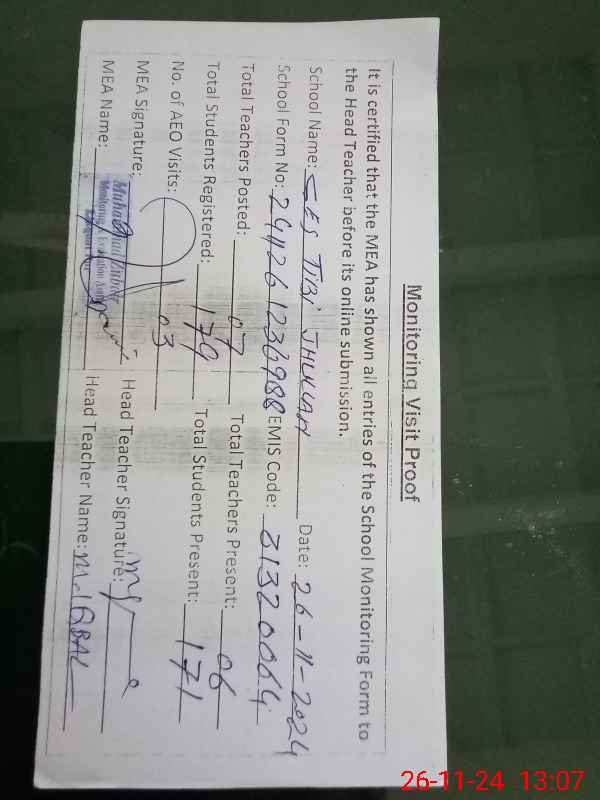 Monitoring Visit Proof
It is certified that the MEA has shown all entries of the School Monitoring Form to
the Head Teacher before its online submission.
School Name: GES TIBI JHULLAN Date: 26-11-2024
School Form No: 244261236988 EMIS Code: 31320064
Total Teachers Posted: 07 Total Teachers Present: 06
Total Students Registered: 179 Total Students Present: 171
No. of AEO Visits: 03
MEA Signature: Head Teacher Signature:
MEA Name: Head Teacher Name: M. IQBAL
26-11-24 13:07